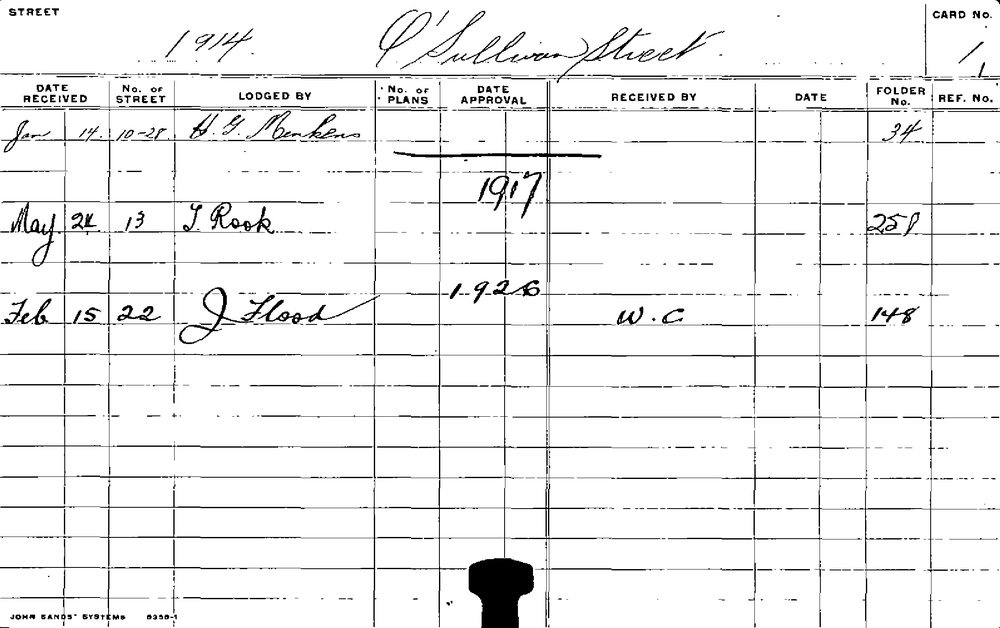 STREET
1914. O'Sullivan Street.
CARD No.
1
DATE RECEIVED No. OF STREET LODGED BY No. OF PLANS DATE APPROVAL RECEIVED BY DATE FOLDER No. REF. No.
Jan 14. 10-28 H. G. Menkens 34
1917
May 24 13 T. Rook 258
1926
Feb 15 22 J Flood W. C. 148
JOHN SANDS' SYSTEMS 6350-1